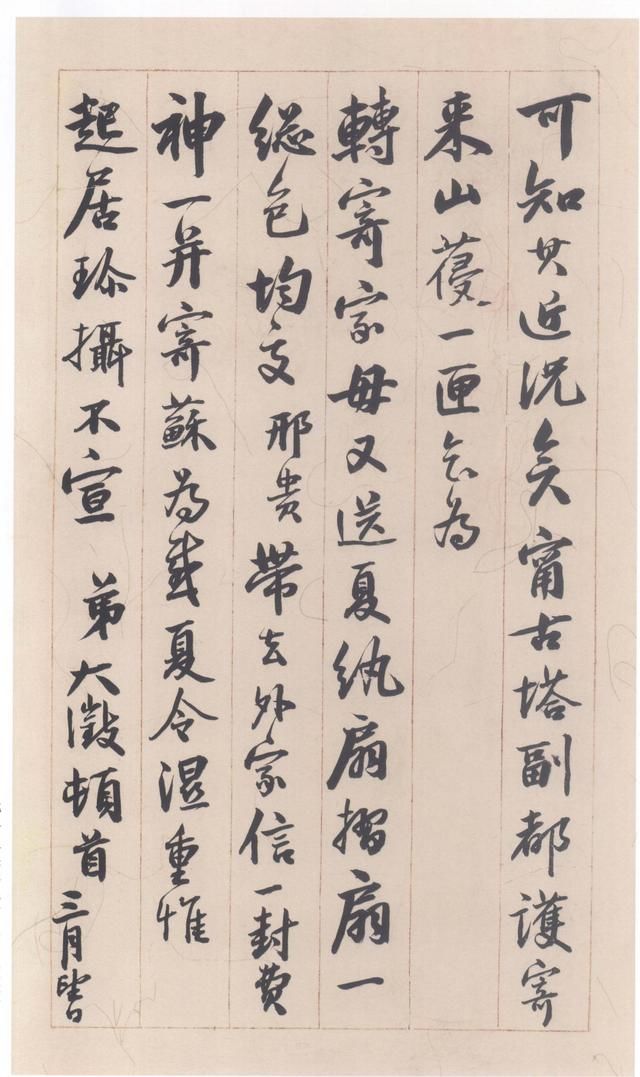 可知其近况矣甯古塔副都護寄
来山葠一匣乞为
轉寄家母又送夏紈扇摺扇一
総包均交邢贵帶去外家信一封费
神一并寄蘇为感夏令濕重惟
起居珍攝不宣 弟大澂頓首 三月